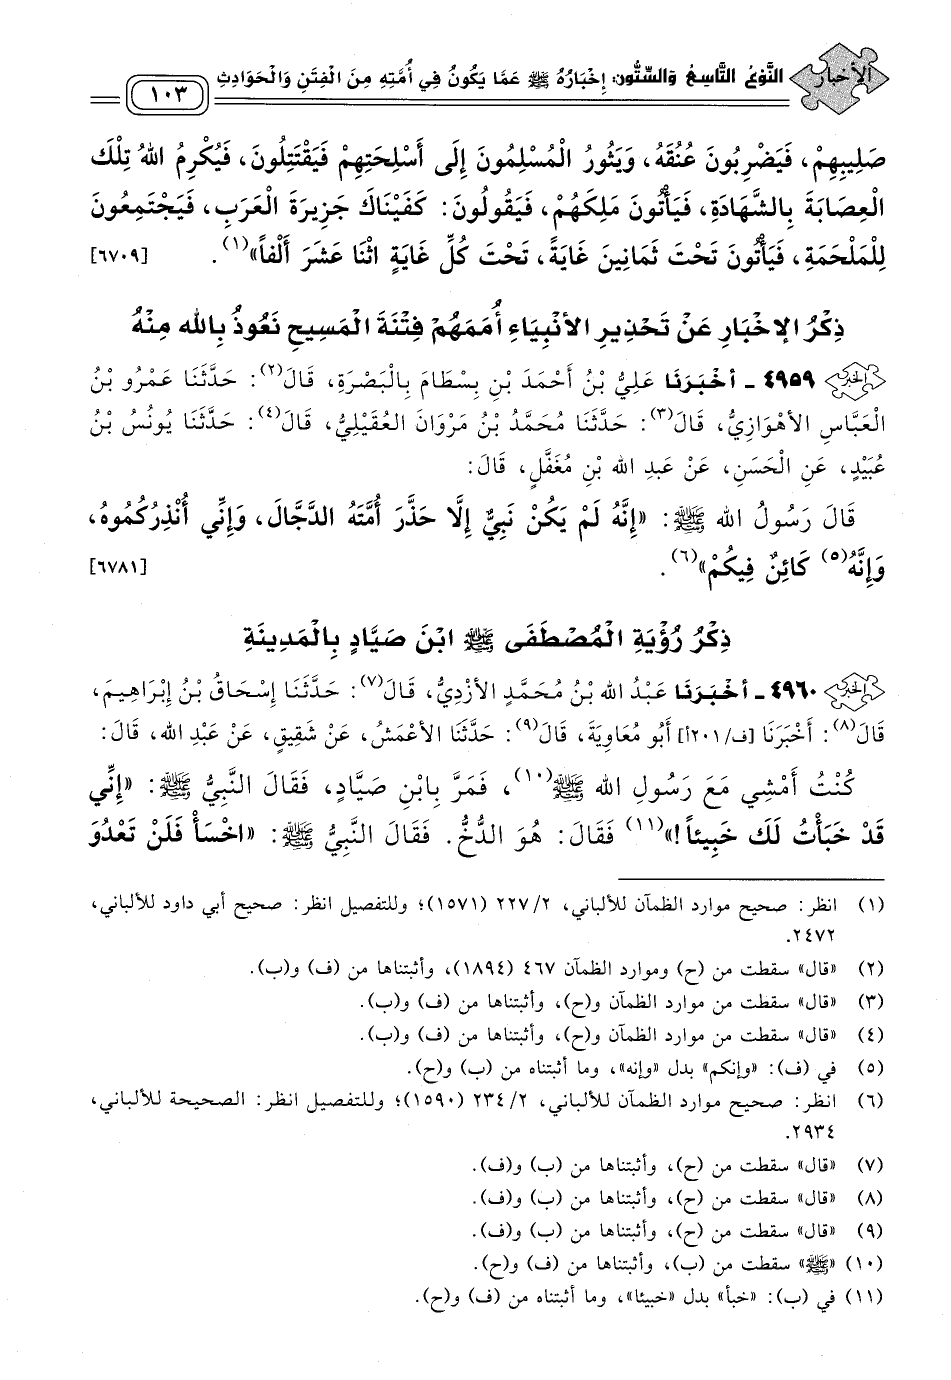 الأخبار
النَّوْعُ التَّاسِعُ وَالسِّتُّونَ: إِخْبَارُهُ ﷺ عَمَّا يَكُونُ فِي أُمَّتِهِ مِنَ الْفِتَنِ وَالْحَوَادِثِ
١٠٣
صَلِيبِهِمْ، فَيَضْرِبُونَ عُنُقَهُ، وَيَثُورُ الْمُسْلِمُونَ إِلَى أَسْلِحَتِهِمْ فَيَقْتَتِلُونَ، فَيُكْرِمُ اللهُ تِلْكَ
الْعِصَابَةَ بِالشَّهَادَةِ، فَيَأْتُونَ مَلِكَهُمْ، فَيَقُولُونَ: كَفَيْنَاكَ جَزِيرَةَ الْعَرَبِ، فَيَجْتَمِعُونَ
لِلْمَلْحَمَةِ، فَيَأْتُونَ تَحْتَ ثَمَانِينَ غَايَةً، تَحْتَ كُلِّ غَايَةٍ اثْنَا عَشَرَ أَلْفاً»(١). [٦٧٠٩]
ذِكْرُ الإِخْبَارِ عَنْ تَحْذِيرِ الأَنْبِيَاءِ أُمَمَهُمْ فِتْنَةَ الْمَسِيحِ نَعُوذُ بِاللهِ مِنْهُ
٤٩٥٩ - أَخْبَرَنَا عَلِيُّ بْنُ أَحْمَدَ بْنِ بِسْطَامَ بِالْبَصْرَةِ، قَالَ(٢): حَدَّثَنَا عَمْرُو بْنُ
الْعَبَّاسِ الأَهْوَازِيُّ، قَالَ(٣): حَدَّثَنَا مُحَمَّدُ بْنُ مَرْوَانَ العُقَيْلِيُّ، قَالَ(٤): حَدَّثَنَا يُونُسُ بْنُ
عُبَيْدٍ، عَنِ الْحَسَنِ، عَنْ عَبدِ اللهِ بْنِ مُغَفَّلٍ، قَالَ:
قَالَ رَسُولُ اللهِ ﷺ: «إِنَّهُ لَمْ يَكُنْ نَبِيٌّ إِلَّا حَذَّرَ أُمَّتَهُ الدَّجَّالَ، وَإِنِّي أُنْذِرُكُمُوهُ،
وَإِنَّهُ(٥) كَائِنٌ فِيكُمْ»(٦). [٦٧٨١]
ذِكْرُ رُؤْيَةِ الْمُصْطَفَى ﷺ ابْنَ صَيَّادٍ بِالْمَدِينَةِ
٤٩٦٠ - أَخْبَرَنَا عَبْدُ اللهِ بْنُ مُحَمَّدٍ الأَزْدِيُّ، قَالَ(٧): حَدَّثَنَا إِسْحَاقُ بْنُ إِبْرَاهِيمَ،
قَالَ(٨): أَخْبَرَنَا [ف/٢٠١أ] أَبُو مُعَاوِيَةَ، قَالَ(٩): حَدَّثَنَا الأَعْمَشُ، عَنْ شَقِيقٍ، عَنْ عَبْدِ اللهِ، قَالَ:
كُنْتُ أَمْشِي مَعَ رَسُولِ اللهِ ﷺ(١٠)، فَمَرَّ بِابْنِ صَيَّادٍ، فَقَالَ النَّبِيُّ ﷺ: «إِنِّي
قَدْ خَبَأْتُ لَكَ خَبِيئاً!»(١١) فَقَالَ: هُوَ الدُّخُّ. فَقَالَ النَّبِيُّ ﷺ: «اخْسَأْ فَلَنْ تَعْدُوَ
(١) انظر: صحيح موارد الظمآن للألباني، ٢/ ٢٢٧ (١٥٧١)؛ وللتفصيل انظر: صحيح أبي داود للألباني،
٢٤٧٢.
(٢) «قال» سقطت من (ح) وموارد الظمآن ٤٦٧ (١٨٩٤)، وأثبتناها من (ف) و(ب).
(٣) «قال» سقطت من موارد الظمآن و(ح)، وأثبتناها من (ف) و(ب).
(٤) «قال» سقطت من موارد الظمآن و(ح)، وأثبتناها من (ف) و(ب).
(٥) في (ف): «وإنكم» بدل «وإنه»، وما أثبتناه من (ب) و(ح).
(٦) انظر: صحيح موارد الظمآن للألباني، ٢/ ٢٣٤ (١٥٩٠)؛ وللتفصيل انظر: الصحيحة للألباني،
٢٩٣٤.
(٧) «قال» سقطت من (ح)، وأثبتناها من (ب) و(ف).
(٨) «قال» سقطت من (ح)، وأثبتناها من (ب) و(ف).
(٩) «قال» سقطت من (ح)، وأثبتناها من (ب) و(ف).
(١٠) «ﷺ» سقطت من (ب)، وأثبتناها من (ف) و(ح).
(١١) في (ب): «خبأ» بدل «خبيئا»، وما أثبتناه من (ف) و(ح).